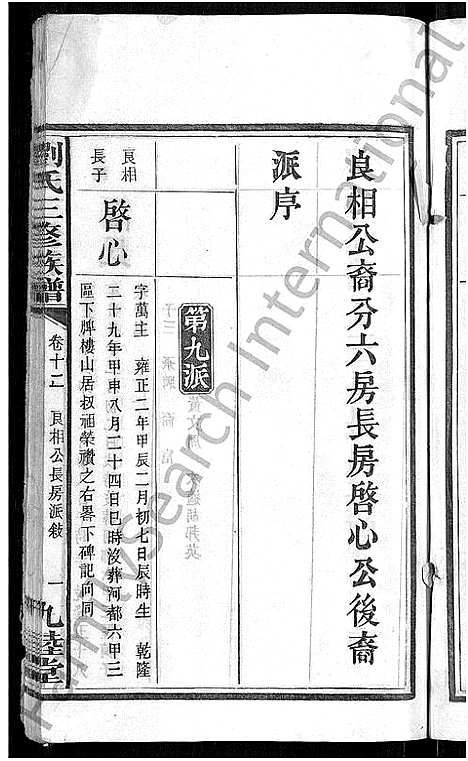 良相公裔分六房長房啓心公後裔
派序
第九派
良相
長子
啓心
字萬主 雍正二年甲辰二月初七日辰時生 乾隆
二十九年甲申八月二十四日巳時沒葬河都六甲三
區下牌樓山居叔祖榮禶之右畧下碑記向同
劉氏三修族譜
卷十二
良相公長房派敘
一
九睦堂
FamilySearch International